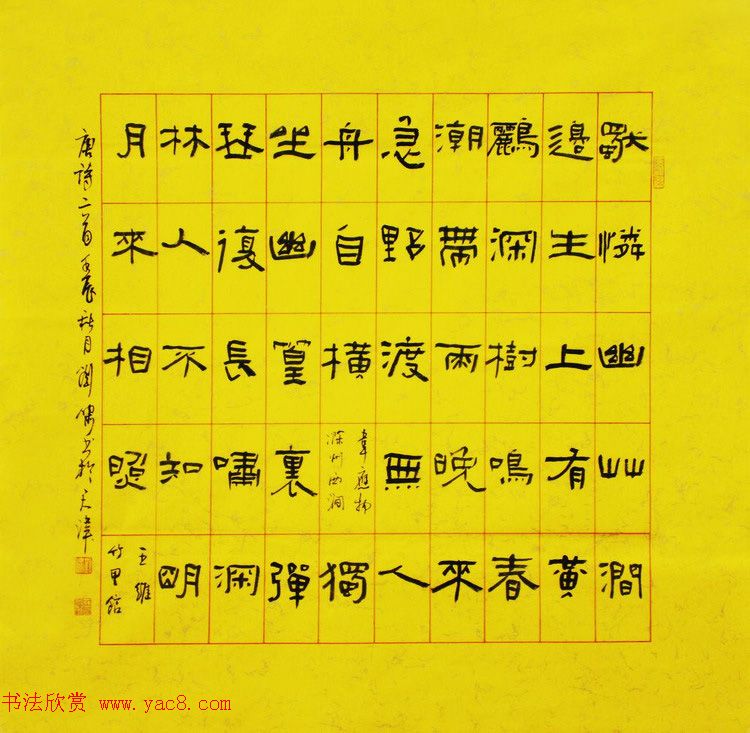 獨憐幽艸澗
邊生上有黃
鸝深樹鳴春
潮帶雨晚來
急野渡無人
舟自橫
韋應物
滁州西澗
獨
坐幽篁裏彈
琴復長嘯深
林人不知明
月來相照
王維
竹里館
唐詩二首壬辰秋月 書於天津
书法欣赏 www.yac8.com